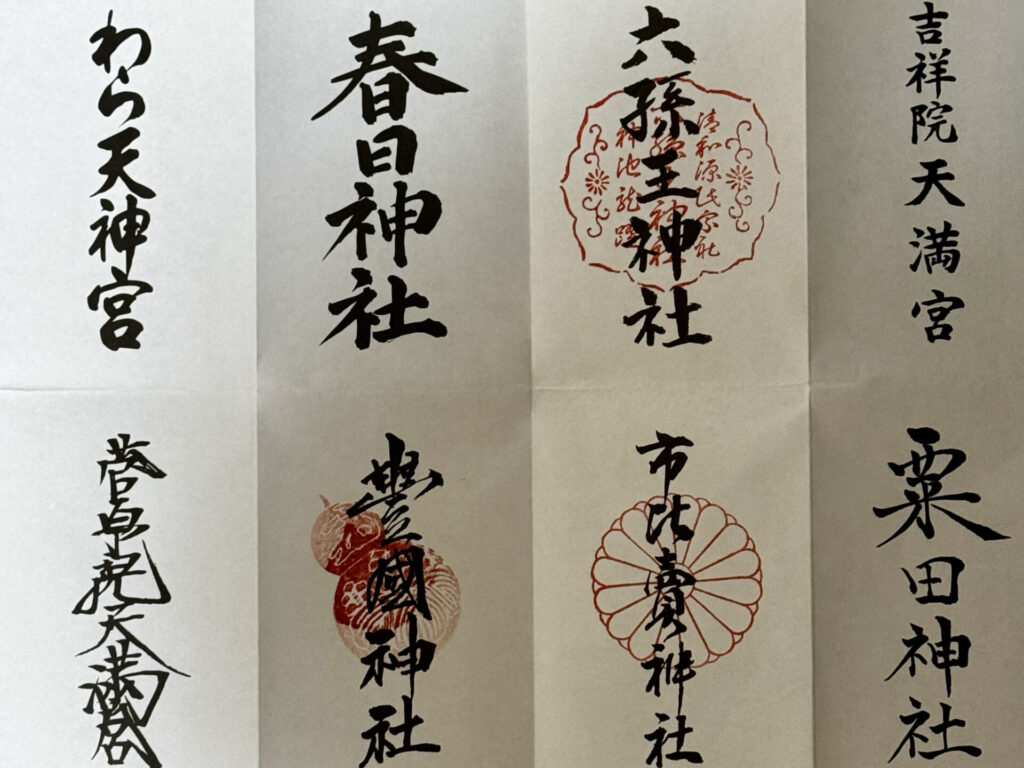 吉祥院天満宮
六孫王神社
清和源氏宗社
神池龍
春日神社
わら天神宮
粟田神社
市比賣神社
豐國神社
菅原院天満宮